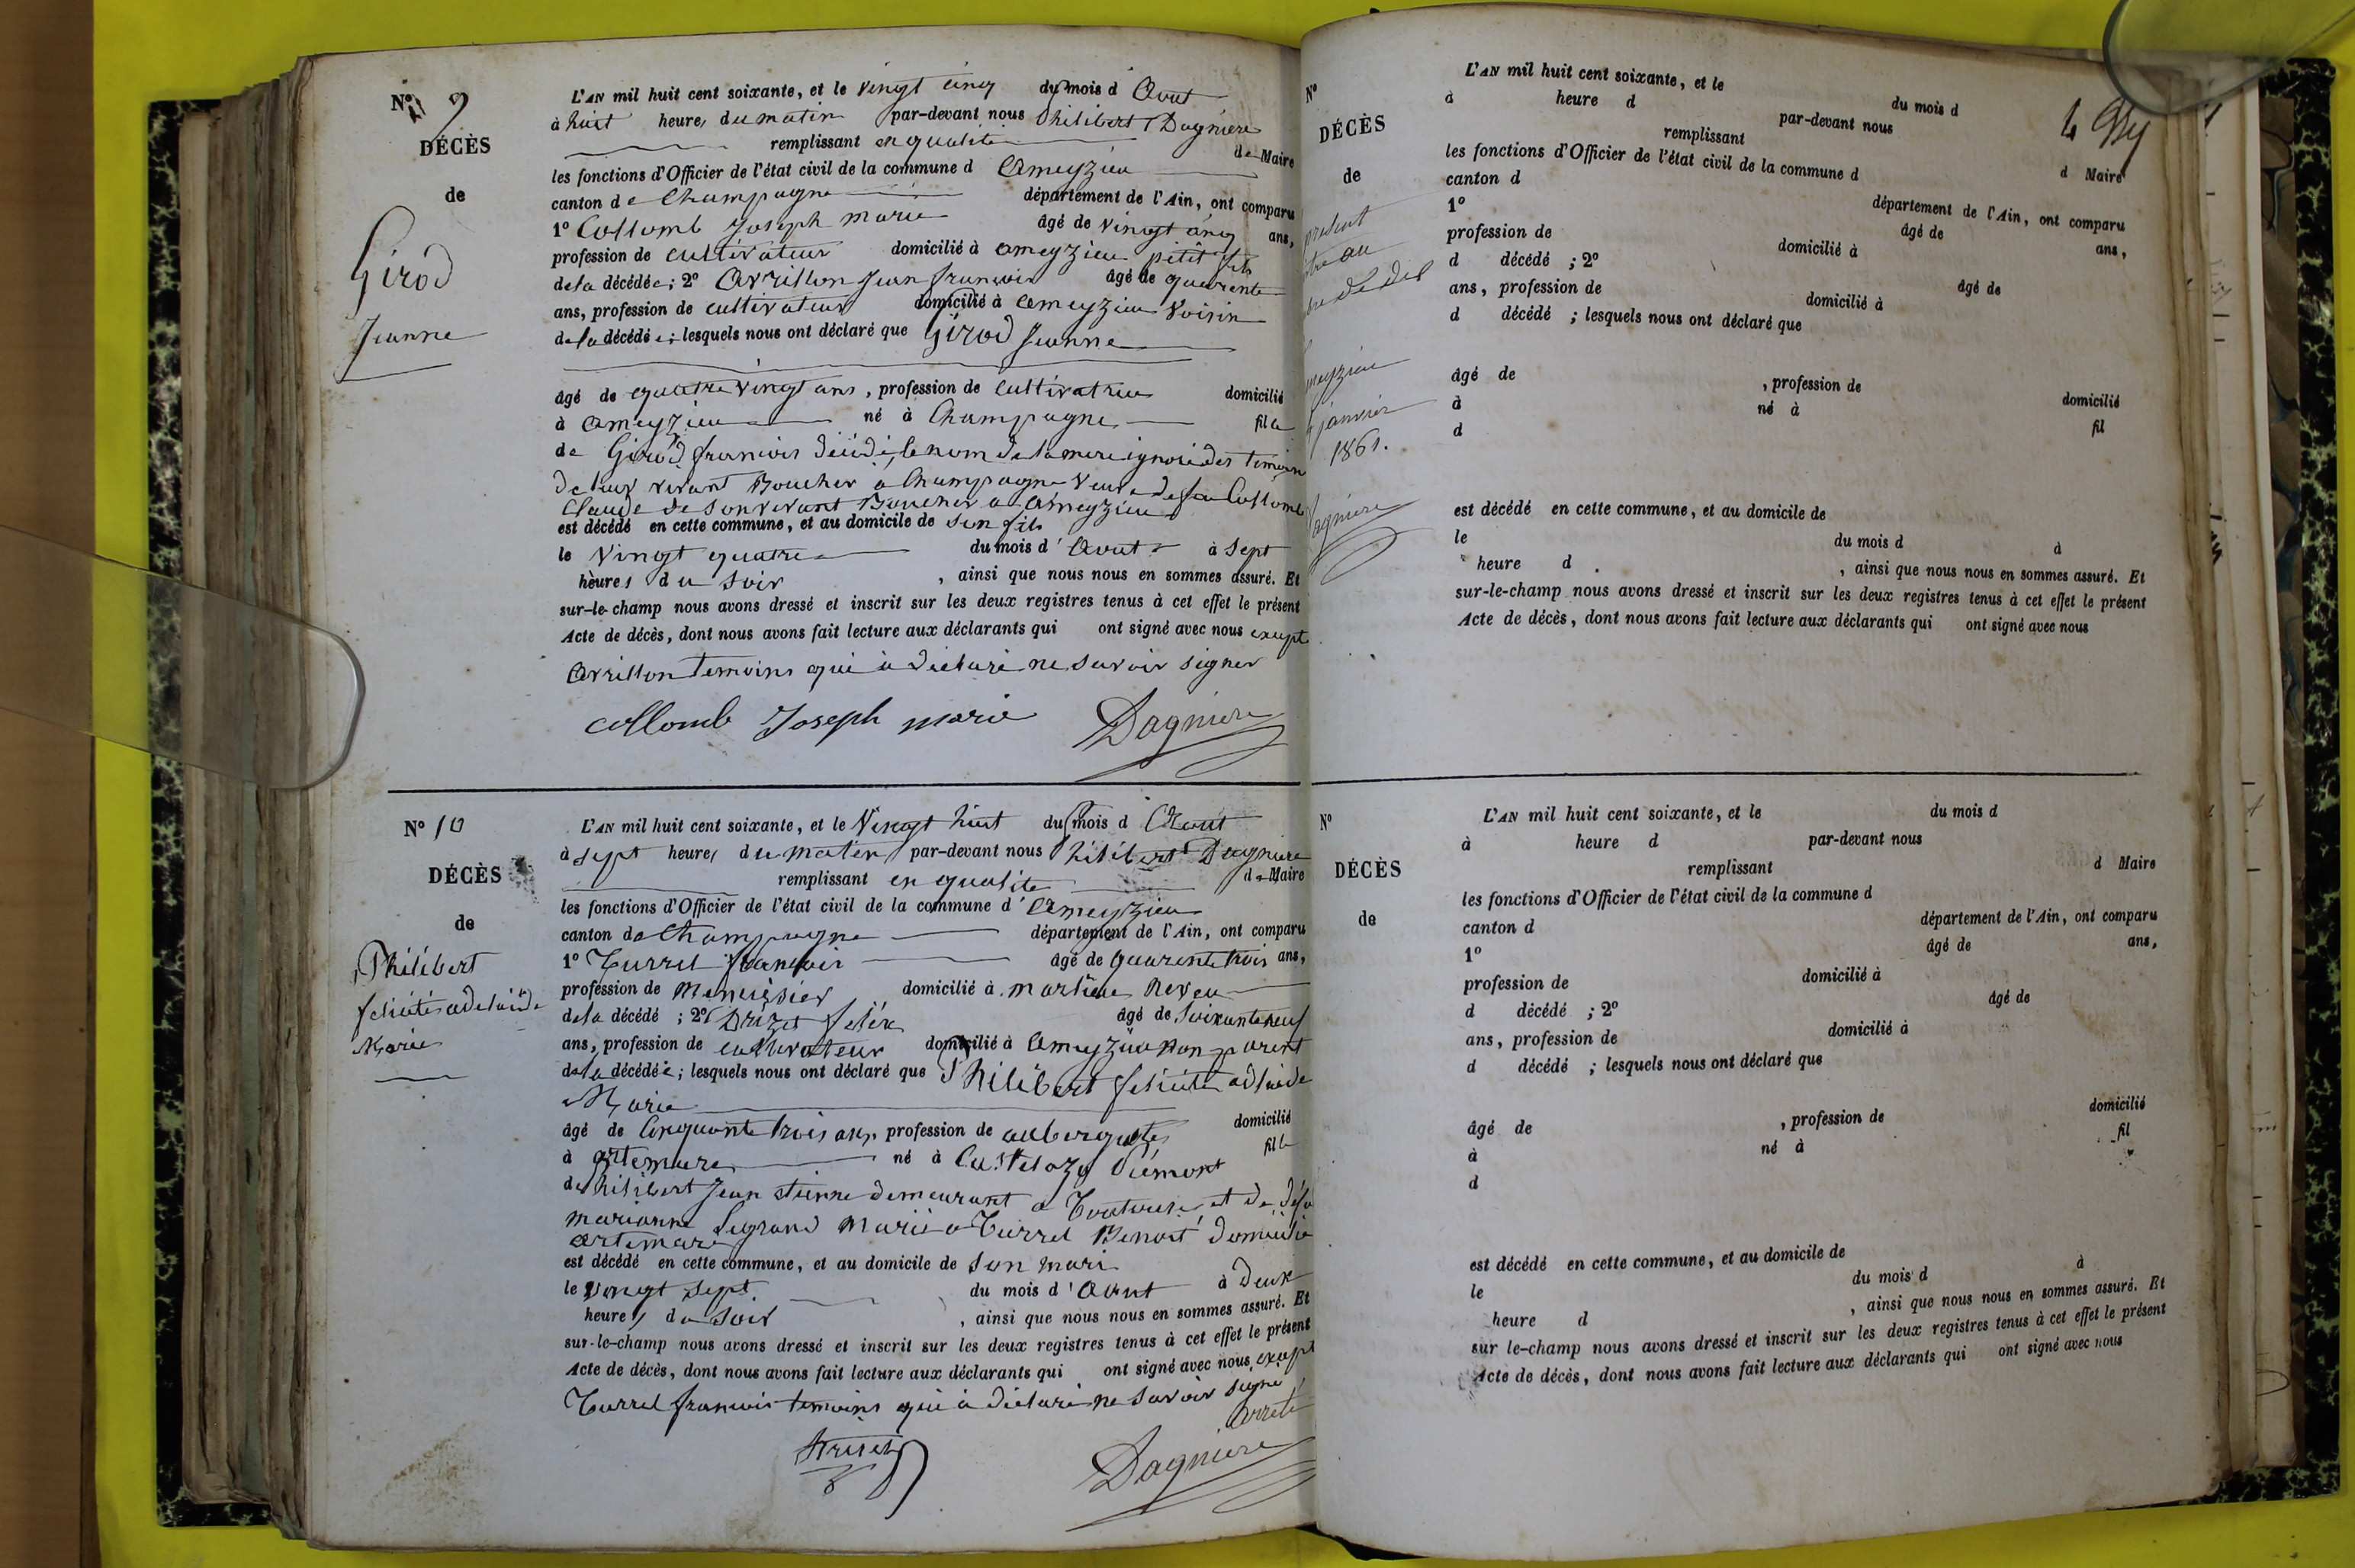 N° 9
DÉCÈS
de
Girod
Jeanne
L'AN mil huit cent soixante, et le vingt cinq du mois d Aout
à huit heures du matin par-devant nous Philibert Dagniere
remplissant en qualité de Maire
les fonctions d'Officier de l'état civil de la commune d Ameyzieu
canton de Champagne département de l'Ain, ont comparu
1° Collomb Joseph marie âgé de vingt cinq ans,
profession de cultivateur domicilié à ameyzieu petit fils
de la décédée; 2° Avrillon Jean francois âgé de quarente
ans, profession de cultivateur domicilié à ameyzieu voisin
de la décédée; lesquels nous ont déclaré que Girod Jeanne
âgé de quatre vingt ans, profession de cultivatrice domicilié
à ameyzieu né à Champagne fille
de Girod francois décédé, le nom de la mere ignoré des temoins
de leur vivant Boucher a Champagne veuve de feu Collomb
Claude de son vivant Boucher a ameyzieu
est décédé en cette commune, et au domicile de son fils
le vingt quatre du mois d'Aout à sept
heures du soir, ainsi que nous nous en sommes assuré. Et
sur-le-champ nous avons dressé et inscrit sur les deux registres tenus à cet effet le présent
Acte de décès, dont nous avons fait lecture aux déclarants qui ont signé avec nous exepte
Avrillon temoins qui à déclaré ne savoir signer
collomb Joseph marie Dagniere
N° 10
DÉCÈS
de
Philibert
felicité adelaïde
Marie
L'AN mil huit cent soixante, et le Vingt huit du mois d Aout
à sept heures du matin par-devant nous Philibert Dagniere
remplissant en qualité de Maire
les fonctions d'Officier de l'état civil de la commune d'Ameyzieu
canton de Champagne département de l'Ain, ont comparu
1° Turrel francois âgé de quarente trois ans,
profession de Menuisier domicilié à Neveu
de la décédé; 2° Drizet felix âgé de soixante neuf
ans, profession de cultivateur domicilié à Ameyzieu non parent
de la décédée; lesquels nous ont déclaré que Philibert felicité adlaide
Marie
âgé de Cinquante trois ans, profession de aubergiste domicilié
à artemare né à Piémont fille
de Philibert Jean etienne demeurant a et de
marianne Legrand Marié a Turrel Benoit domicilié
artemare
est décédé en cette commune, et au domicile de son mari
le vingt sept du mois d'Aout à deux
heures du soir, ainsi que nous nous en sommes assuré. Et
sur-le-champ nous avons dressé et inscrit sur les deux registres tenus à cet effet le présent
Acte de décès, dont nous avons fait lecture aux déclarants qui ont signé avec nous exepte
Turrel francois temoins qui à déclaré ne savoir signé
Arreté
Dagniere
N°
DÉCÈS
de
présent
janvier
1861.
L'AN mil huit cent soixante, et le du mois d
à heure d par-devant nous
remplissant d Maire
les fonctions d'Officier de l'état civil de la commune d
canton d département de l'Ain, ont comparu
1° âgé de ans,
profession de domicilié à
d décédé ; 2° âgé de
ans, profession de domicilié à
d décédé ; lesquels nous ont déclaré que
âgé de , profession de domicilié
à né à fil
d
est décédé en cette commune, et au domicile de
le du mois d à
heure d , ainsi que nous nous en sommes assuré. Et
sur-le-champ nous avons dressé et inscrit sur les deux registres tenus à cet effet le présent
Acte de décès, dont nous avons fait lecture aux déclarants qui ont signé avec nous
N°
DÉCÈS
de
L'AN mil huit cent soixante, et le du mois d
à heure d par-devant nous
remplissant d Maire
les fonctions d'Officier de l'état civil de la commune d
canton d département de l'Ain, ont comparu
1° âgé de ans,
profession de domicilié à
d décédé ; 2° âgé de
ans, profession de domicilié à
d décédé ; lesquels nous ont déclaré que
âgé de , profession de domicilié
à né à fil
d
est décédé en cette commune, et au domicile de
le du mois d à
heure d , ainsi que nous nous en sommes assuré. Et
sur le-champ nous avons dressé et inscrit sur les deux registres tenus à cet effet le présent
Acte de décès, dont nous avons fait lecture aux déclarants qui ont signé avec nous